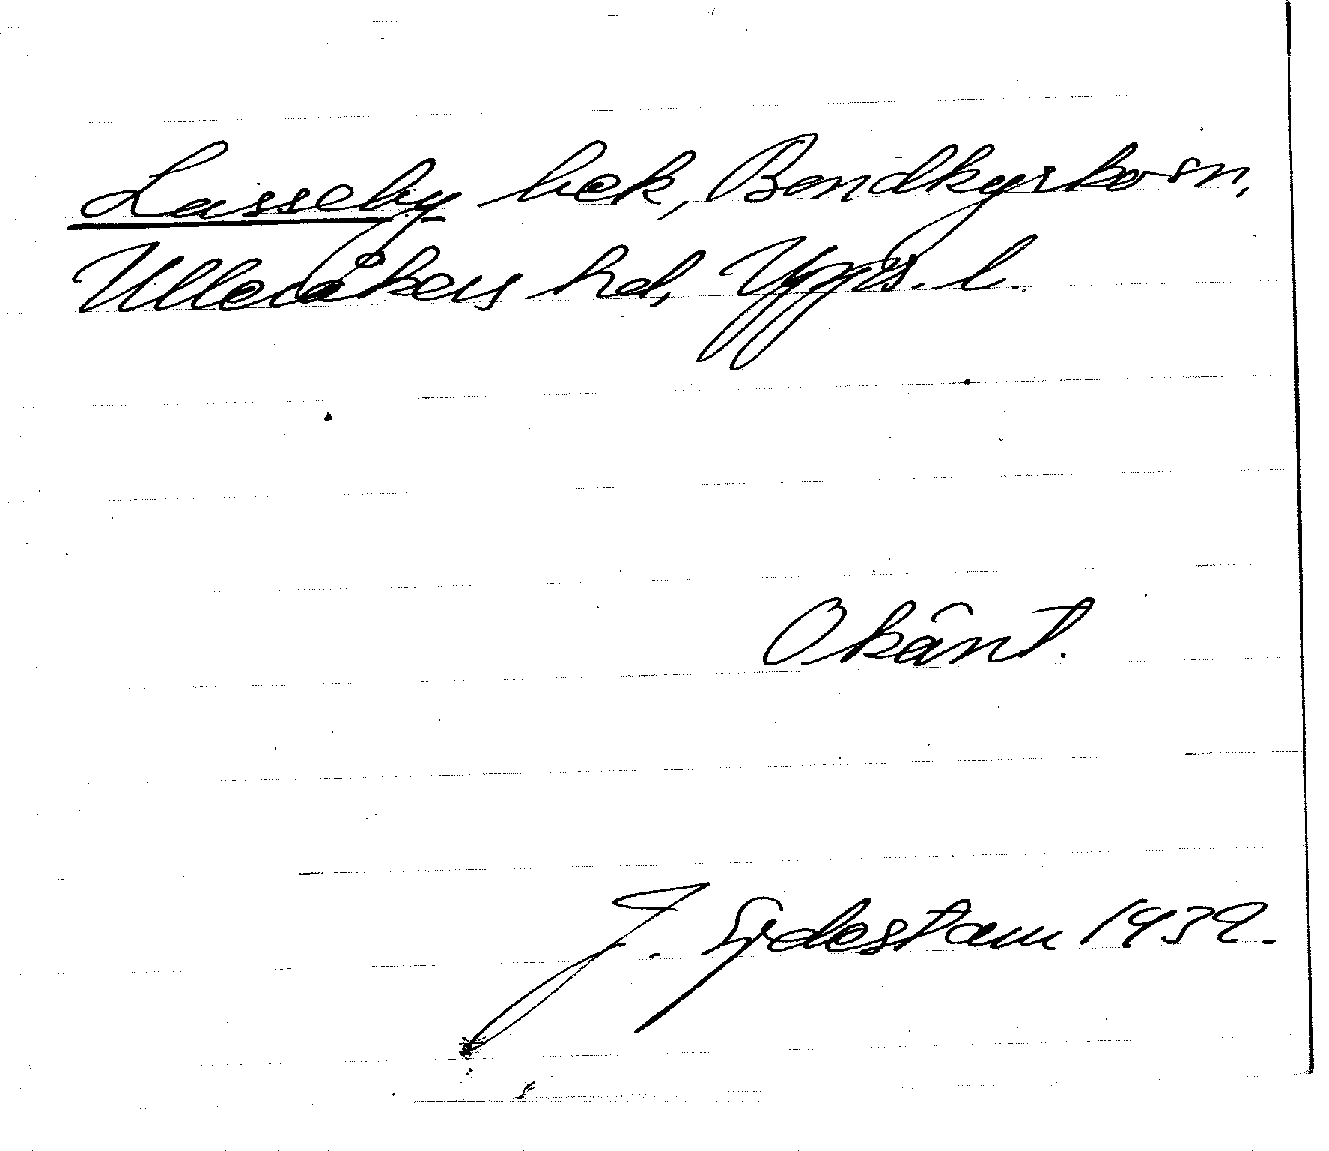 Lasseby bek, Bondkyrko sn,
Ulleråkers hd, Upps. l.
Okänt.
J. Sydestam 1932.